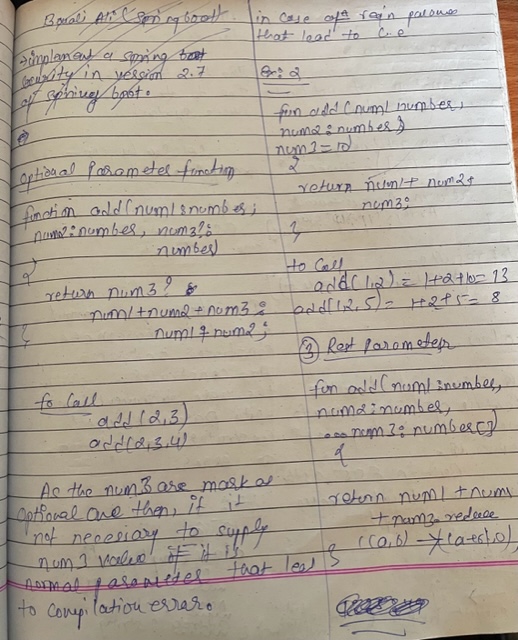 →implement a spring boot
security in version 2.7
of spring boot.
optional Parameter function
function add(num1:number;
num2:number, num3?:
number)
{
return num3?
num1+num2+num3:
num1+num2;
}
to Call
add(2,3)
add(2,3,4)
As the num3 are mark as
optional one then, if it
not necessary to supply
num3 value if it is
normal parameter that lead
to compilation error.
in case of req'n
that lead to C.e
Ex: 2
fun add(num1 number,
num2:number,
num3=10)
{
return num1+num2+
num3;
}
to Call
add(1,2)=1+2+10=13
add(1,2,5)=1+2+5=8
③ Rest Parameter
fun add(num1:number,
num2:number,
...num3:number[])
{
return num1+num
+num3.reduce
((a,b)→(a+b),0)
}